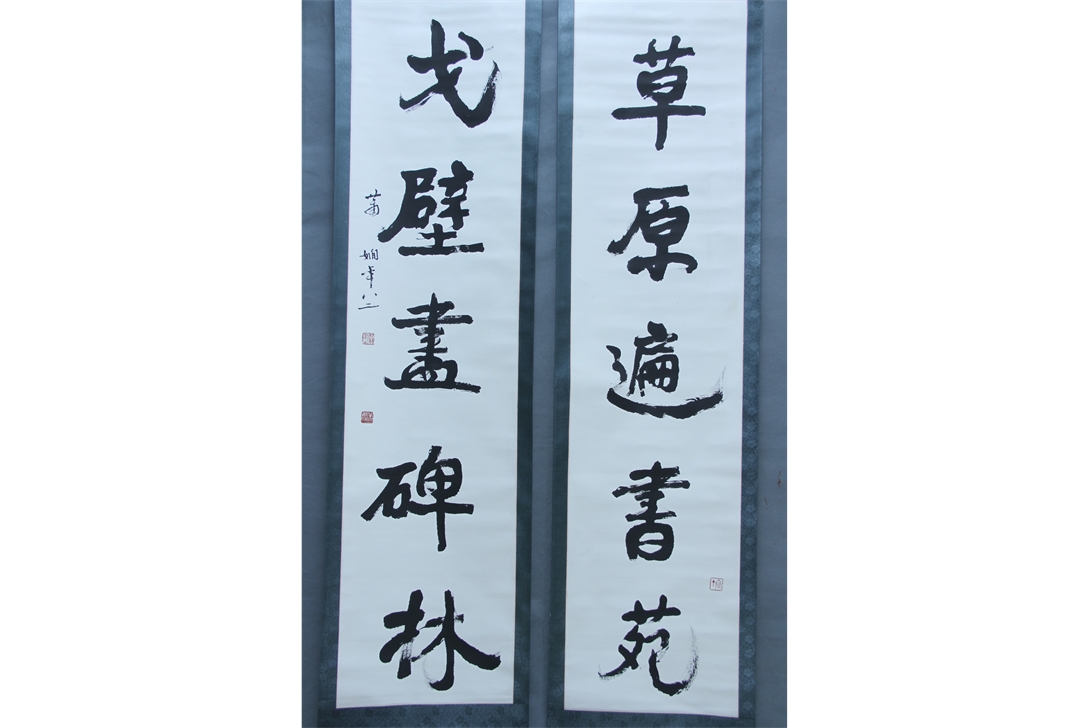 草原遍書苑
戈壁盡碑林
蕭嫻年八二